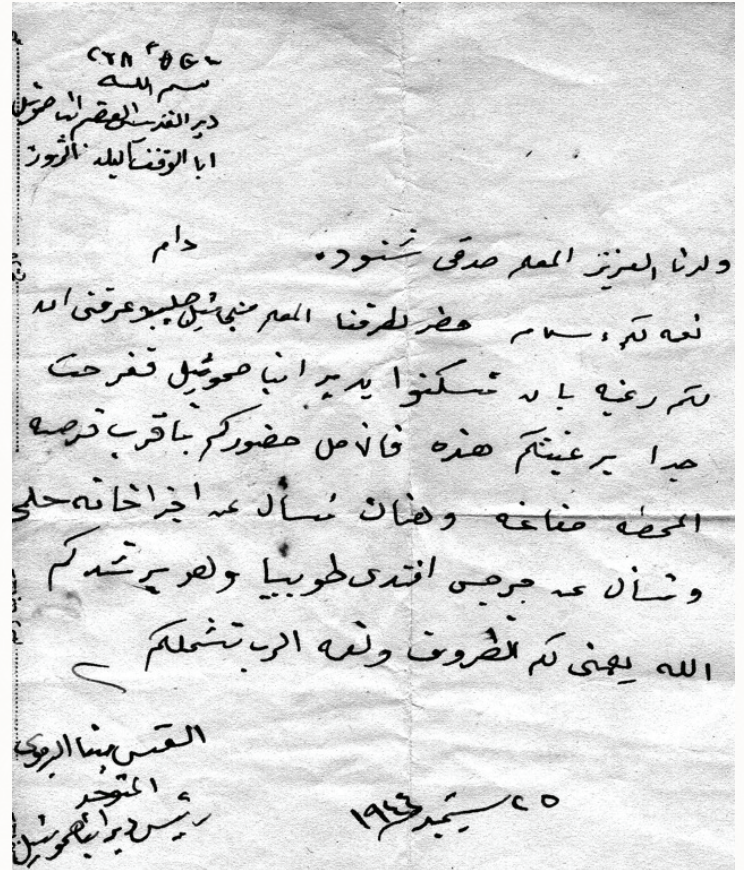 بسم الله
دير القديس العظيم انبا صموئيل
ولدنا العزيز المعلم صدقى شنوده . دام
نعمه لكم وسلام حضر لطرفنا المعلم ميخائيل وعرفنى ان
لكم رغبه بان تسكنوا بدير انبا صموئيل ففرحت
جدا برغبتكم هذه فالامل حضوركم باقرب فرصه
المحطه مغاغه وهناك تسأل عن اجزاخانه حلمى
وتسأل عن جرجس افندى طوبيا وهو يرشدكم
الله يهئ لكم الظروف ونعمة الرب تشملكم
القس مينا البرموسى
المتوحد
رئيس دير انبا صموئيل
٢٥ سبتمبر ١٩٤٤